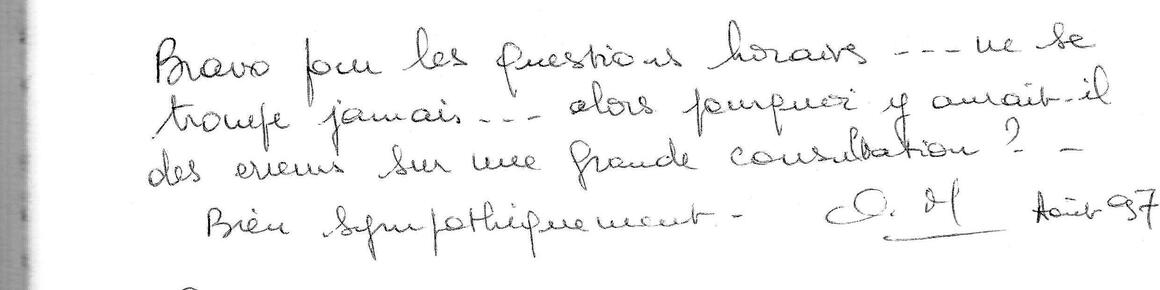 Bravo pour les questions horaires --- ne se
trompe jamais --- alors pourquoi y aurait-il
des erreurs sur une grande consultation ? -
Bien sympathiquement - O. M Août 97